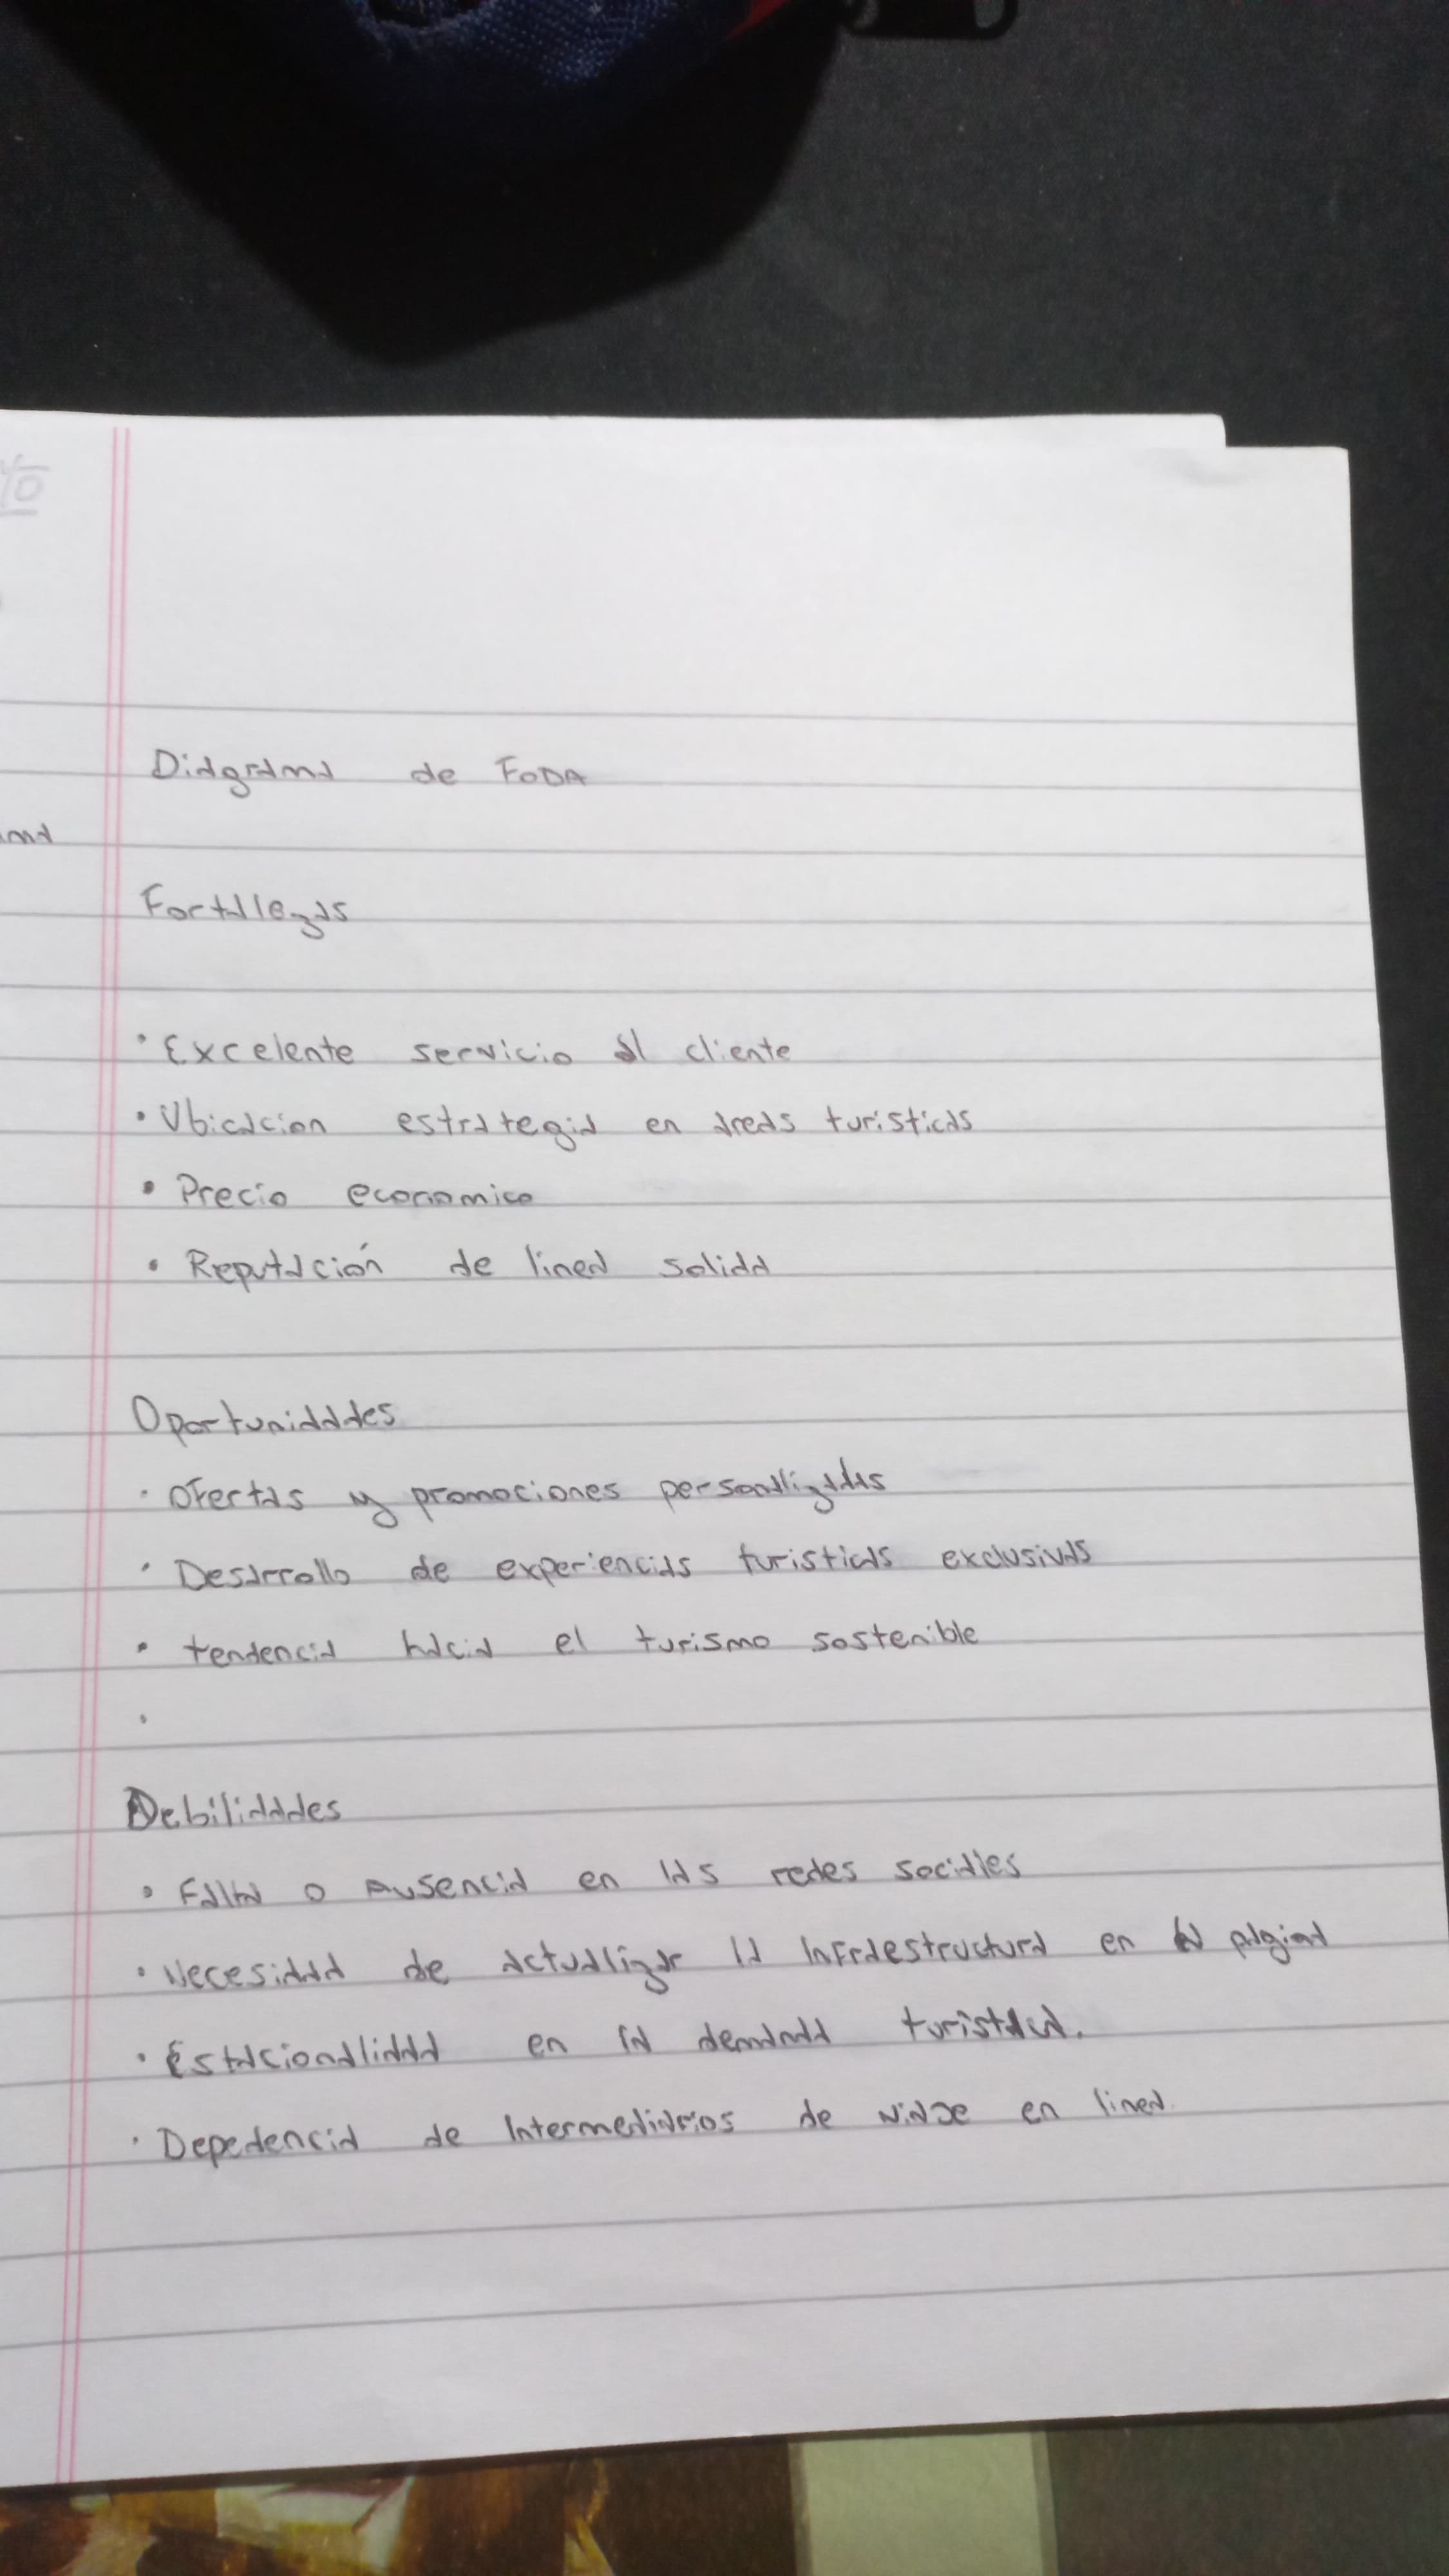 Diagrama de FODA
Fortalezas
• Excelente servicio al cliente
• Ubicacion estrategia en areas turisticas
• Precio economico
• Reputación de linea solida
Oportunidades
• Ofertas y promociones personalizadas
• Desarrollo de experiencias turisticas exclusivas
• tendencia hacia el turismo sostenible
•
Debilidades
• Falta o Ausencia en las redes sociales
• Necesidad de actualizar la infraestructura en la
• Estacionalidad en la demanda
• Depedencia de Intermediarios de viaje en linea.